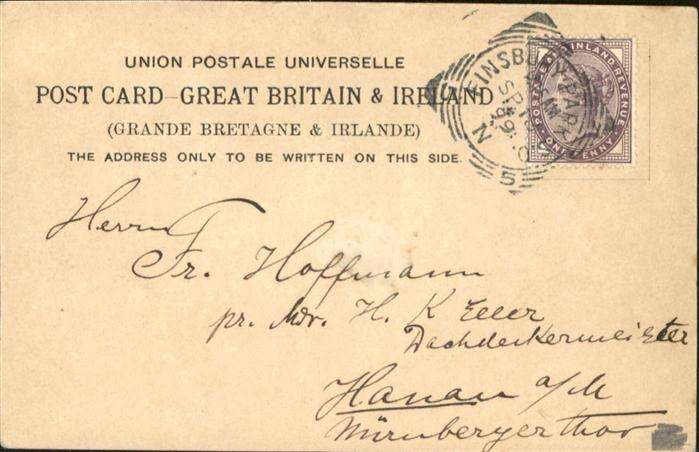 UNION POSTALE UNIVERSELLE
POST CARD-GREAT BRITAIN & IRELAND
(GRANDE BRETAGNE & IRLANDE)
THE ADDRESS ONLY TO BE WRITTEN ON THIS SIDE.
POSTAGE AND INLAND REVENUE
ONE PENNY
FINSBURY PARK
SP
N
5
Herrn
Fr. Hoffmann
pr. Adr. H. K Eller
Dachdeckermeister
Hanau a/M
Nürnbergerthor